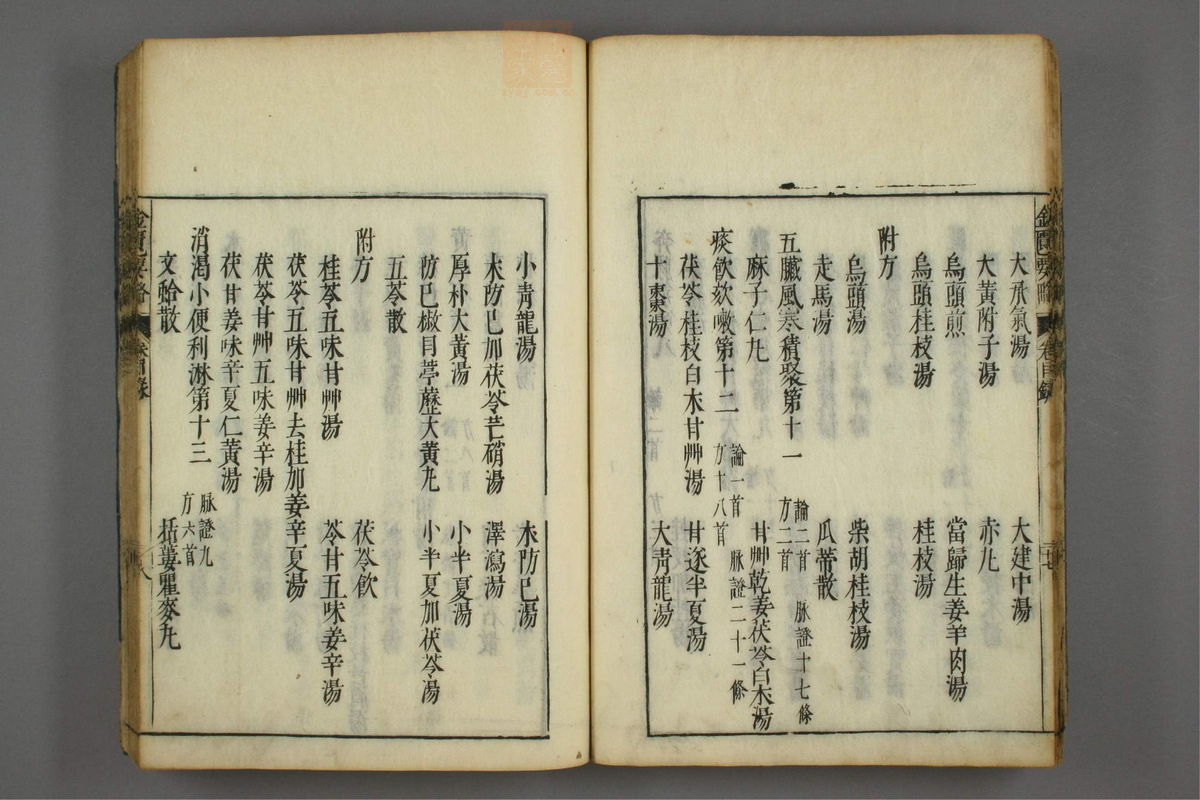 大承氣湯 大建中湯
大黃附子湯 赤丸
烏頭煎 當歸生姜羊肉湯
烏頭桂枝湯 桂枝湯
附方
烏頭湯 柴胡桂枝湯
走馬湯 瓜蒂散
五臟風寒積聚第十一 論二首 脉證十七條 方二首
麻子仁丸 甘艸乾姜茯苓白朮湯
痰飲欬嗽第十二 論一首 脉證二十一條 方十八首
茯苓桂枝白朮甘艸湯 甘遂半夏湯
十棗湯 大青龍湯
小青龍湯 木防巳湯
木防巳加茯苓芒硝湯 澤瀉湯
厚朴大黃湯 小半夏湯
防巳椒目葶藶大黃丸 小半夏加茯苓湯
五苓散
附方 茯苓飲
桂苓五味甘艸湯 苓甘五味姜辛湯
茯苓五味甘艸去桂加姜辛夏湯
茯苓甘艸五味姜辛湯
茯甘姜味辛夏仁黃湯
消渴小便利淋第十三 脉證九 方六首
文蛤散 括蔞瞿麥丸